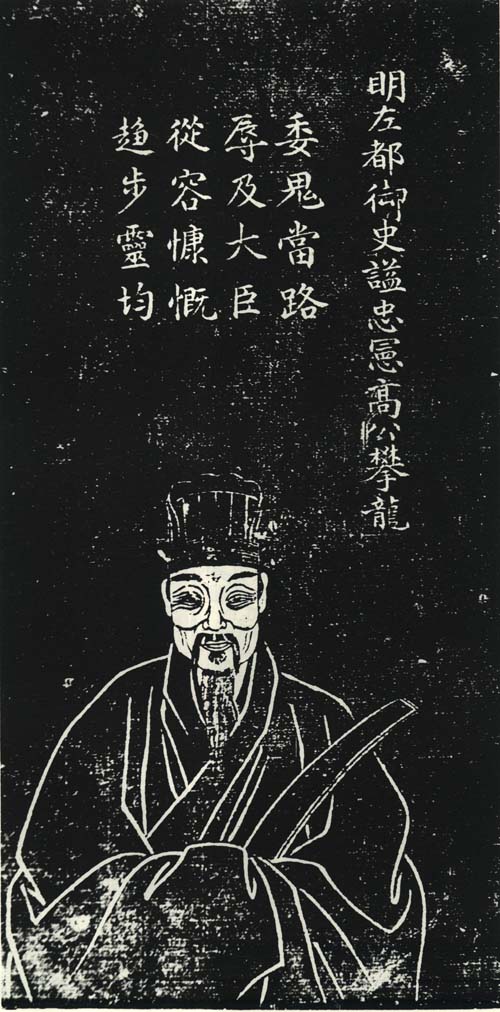 明左都御史謚忠憲高公攀龍
委鬼當路
辱及大臣
從容慷慨
趨步靈均